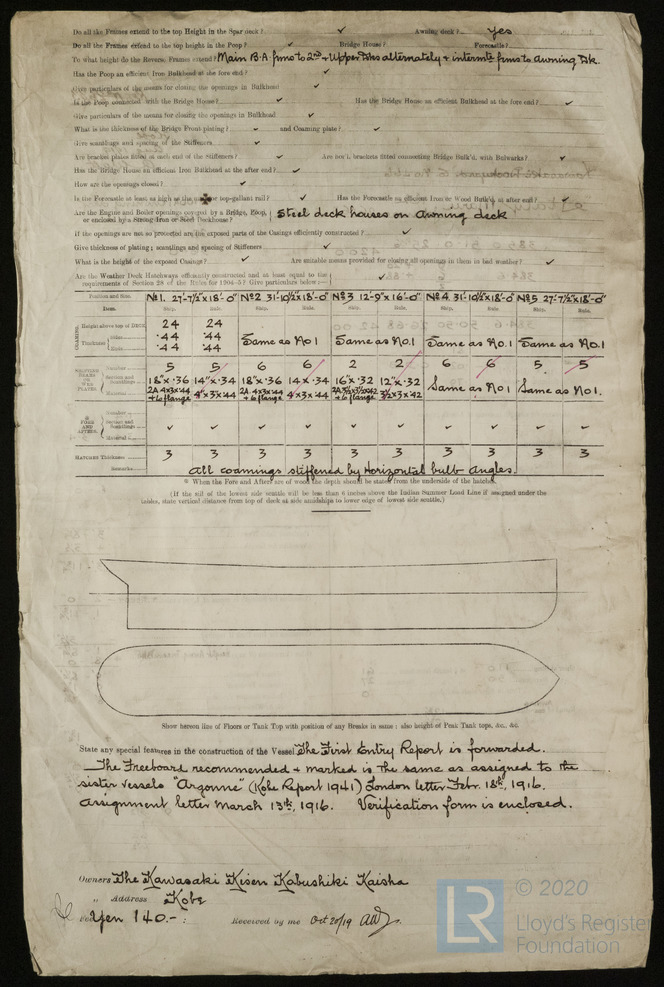 Do all the Frames extend to the top Height in the Spar deck? ✓ Awning deck? yes
Do all the Frames extend to the top height in the Poop? ✓ Bridge House? ✓ Forecastle? ✓
To what height do the Reverse Frames extend? Main B.A frms to 2nd & Upper Dks alternately & intermte frms to Awning Dk.
Has the Poop an efficient Iron Bulkhead at the fore end? ✓
Give particulars of the means for closing the openings in Bulkhead ✓
Is the Poop connected with the Bridge House? ✓ Has the Bridge House an efficient Bulkhead at the fore end? ✓
Give particulars of the means for closing the openings in Bulkhead ✓
What is the thickness of the Bridge Front plating? ✓ and Coaming plate? ✓
Give scantlings and spacing of the Stiffeners ✓
Are bracket plates fitted at each end of the Stiffeners? ✓ Are horl. brackets fitted connecting Bridge Bulk'd. with Bulwarks? ✓
Has the Bridge House an efficient Iron Bulkhead at the after end? ✓
How are the openings closed? ✓
Is the Forecastle at least as high as the main or top-gallant rail? ✓ Has the Forecastle an efficient Iron or Wood Bulk'd. at after end? ✓
Are the Engine and Boiler openings covered by a Bridge, Poop,
or enclosed by a Strong Iron or Steel Deckhouse? Steel deck houses on Awning deck
If the openings are not so protected are the exposed parts of the Casings efficiently constructed? ✓
Give thickness of plating; scantlings and spacing of Stiffeners ✓
What is the height of the exposed Casings? ✓ Are suitable means provided for closing all openings in them in bad weather? ✓
Are the Weather Deck Hatchways efficiently constructed and at least equal to the
requirements of Section 28 of the Rules for 1904-5? Give particulars below:— ✓
Position and Size. No 1. 27'-7½"x18'-0" No 2 31-10½"x18'-0" No 3 12-9"x16'-0" No 4. 31-10½"x18'-0" No 5 27'-7½"x18'-0"
Item. Ship. Rule. Ship. Rule. Ship. Rule. Ship. Rule. Ship. Rule.
COAMING. Height above top of DECK 24 24
Thickness Sides .44 .44 Same as No.1 Same as No.1 Same as No.1 Same as No.1
Ends .44 .44
Number 5 5 6 6 2 2 6 6 5 5
Section and Scantlings 18"x.36 14"x.34 18"x.36 14x.34 16"x.32 12"x.32 Same as No 1 Same as No 1.
Material 2A 4x3x.44 4"x3x.44 2A 4x3x.44 4x3x.44
+6 flange +6 flange +6 flange
FORE AND AFTERS. Number
Section and Scantlings ✓ ✓ ✓ ✓ ✓ ✓ ✓ ✓ ✓ ✓
Material
HATCHES Thickness 3 3 3 3 3 3 3 3 3 3
Remarks All coamings stiffened by Horizontal bulb angles.
* When the Fore and Afters are of wood the depth should be stated from the underside of the hatches.
(If the sill of the lowest side scuttle will be less than 6 inches above the Indian Summer Load Line if assigned under the
tables, state vertical distance from top of deck at side amidships to lower edge of lowest side scuttle.)
Show hereon line of Floors or Tank Top with position of any Breaks in same; also height of Peak Tank tops, &c., &c.
State any special features in the construction of the Vessel The First Entry Report is forwarded.
The Freeboard recommended & marked is the same as assigned to the
sister vessels "Argonne" (Kobe Report 1941) London letter Febr. 18th, 1916.
Assignment letter March 13th, 1916. Verification form is enclosed.
Owners The Kawasaki Kisen Kabushiki Kaisha
" Address Kobe
Fee Yen 140.- : Received by me Oct 20/19
© 2020
LR
Lloyd's Register
Foundation